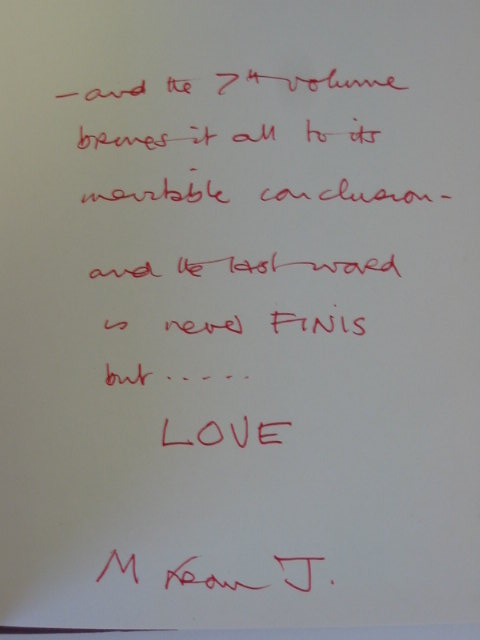 – and the 7th volume
brings it all to its
inevitable conclusion –
and the last word
is never FINIS
but .....
LOVE
M J.